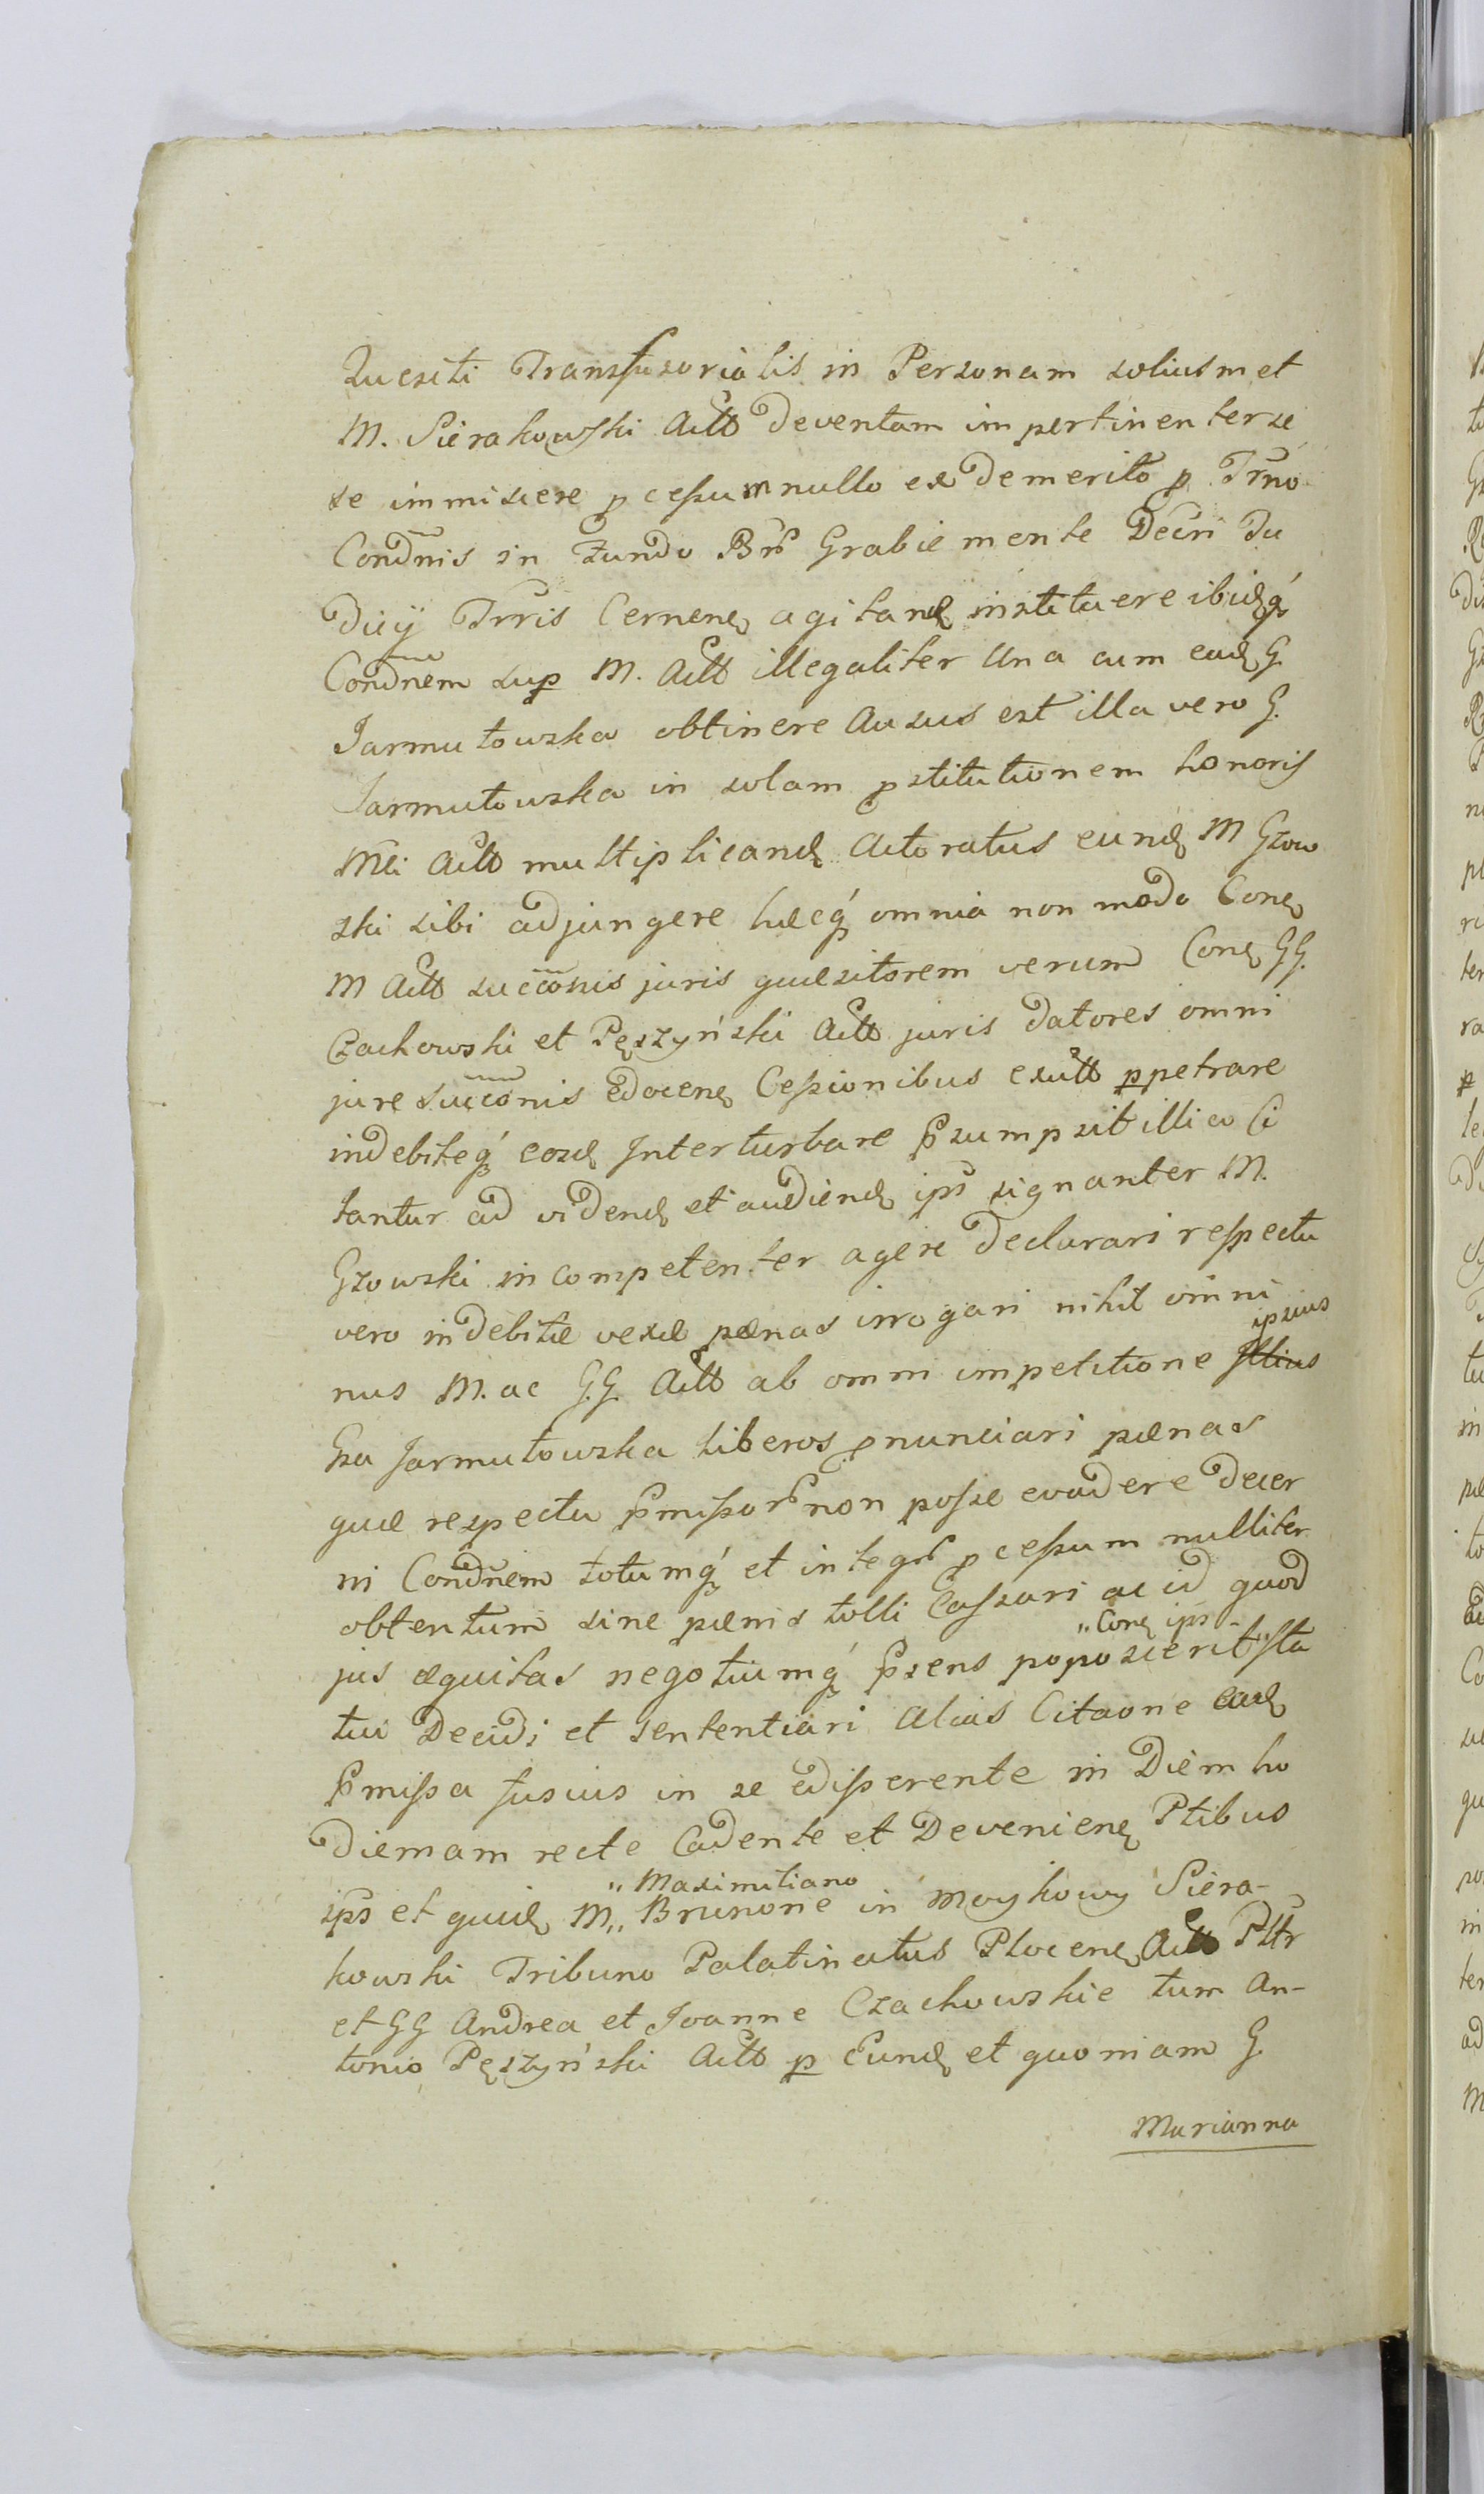 Quesiti Transfusorialis in Personam soliusmet
M. Sierakowski Actt Deventam impertinenter se
se immiscere pcessum nullo ex Demerito p Trno
Condnis in Fundo Bnr Grabie mente Decri Ju
Dicij Trris Cernenę agitandę instituere ibidęq́
Condnem sup M. Actt illegaliter Una cum eadę G.
Jarmutowska obtinere Ausus est illa vero G.
Jarmutowska in solam pstitutionem honoris
Mli Actt multiplicandę Actoratus eundę M Gzow
ski sibi adjungere hæcq́ omnia non modo Conę
M Actt succönis juris quæsitorem verum Conę GG.
Czachowski et Pęszyński Actt juris Datores omni
jure succönis edocenę Cessionibus exutt ppetrare
indebiteq́ eosdę Interturbare Psumpsit illico Ci
tantur ad videndę et audiendę ips signanter M.
Gzowski incompetenter agere Declarari respectu
vero indebitæ vexæ pænas irrogari nihil omni
nus M. ac G.G. Actt ab omni impetitione Illius ipsius
Gsa Jarmutowska liberos pnunciari pænas
quæ respectu Pmissor non posse evadere Decer
ni Condnem totumq́ et integr pcessum nulliter
obtentum sine pænis tolli Cassari ac id quod
jus æquitas negotiumq́ Psens poposcerit „Conę ips„ sta
tui Decidi et sententiari Alias Citaone eadę
Pmissa fusius in se edisserente in Diem ho
Diernam recte Cadente et Devenienę Ptibus
ips et quidę M„ „Maximiliano Brunone in Moykowy Siera-
kowski Tribuno Palatinatus Plocenę Actt Pltr
et GG Andrea et Joanne Czachowskie tum An-
tonio Pęszyński Actt p Eundę et quoniam G.
Marianna